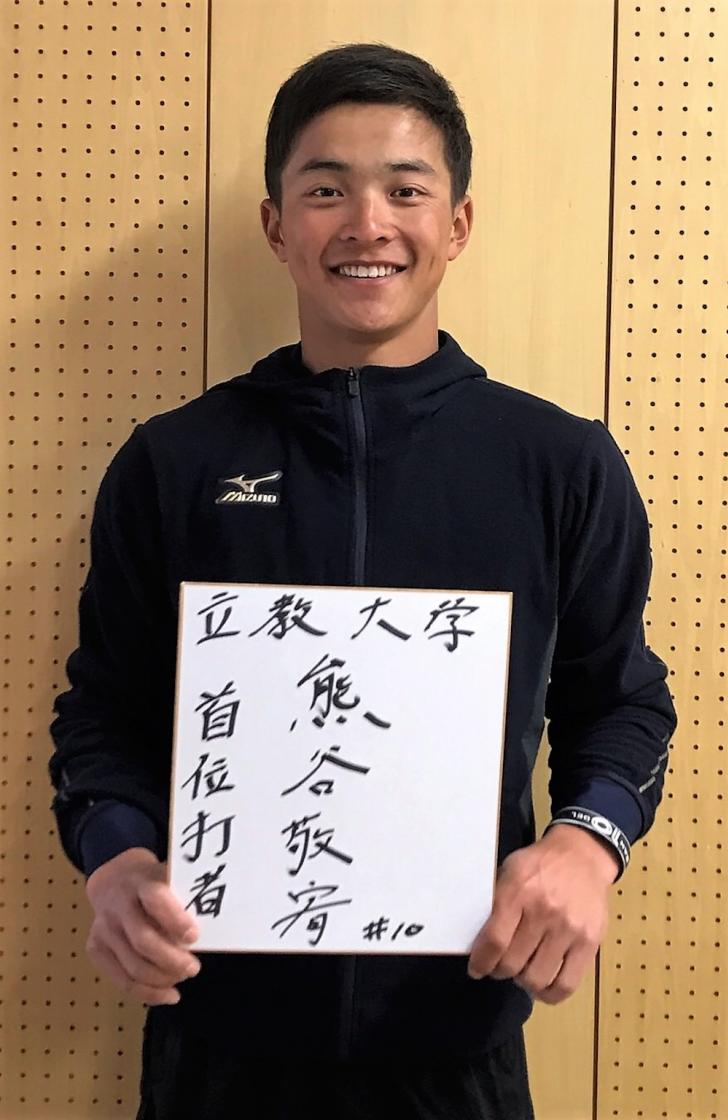 MIZUNO
立教大学
熊谷敬宥
#10
首位打者